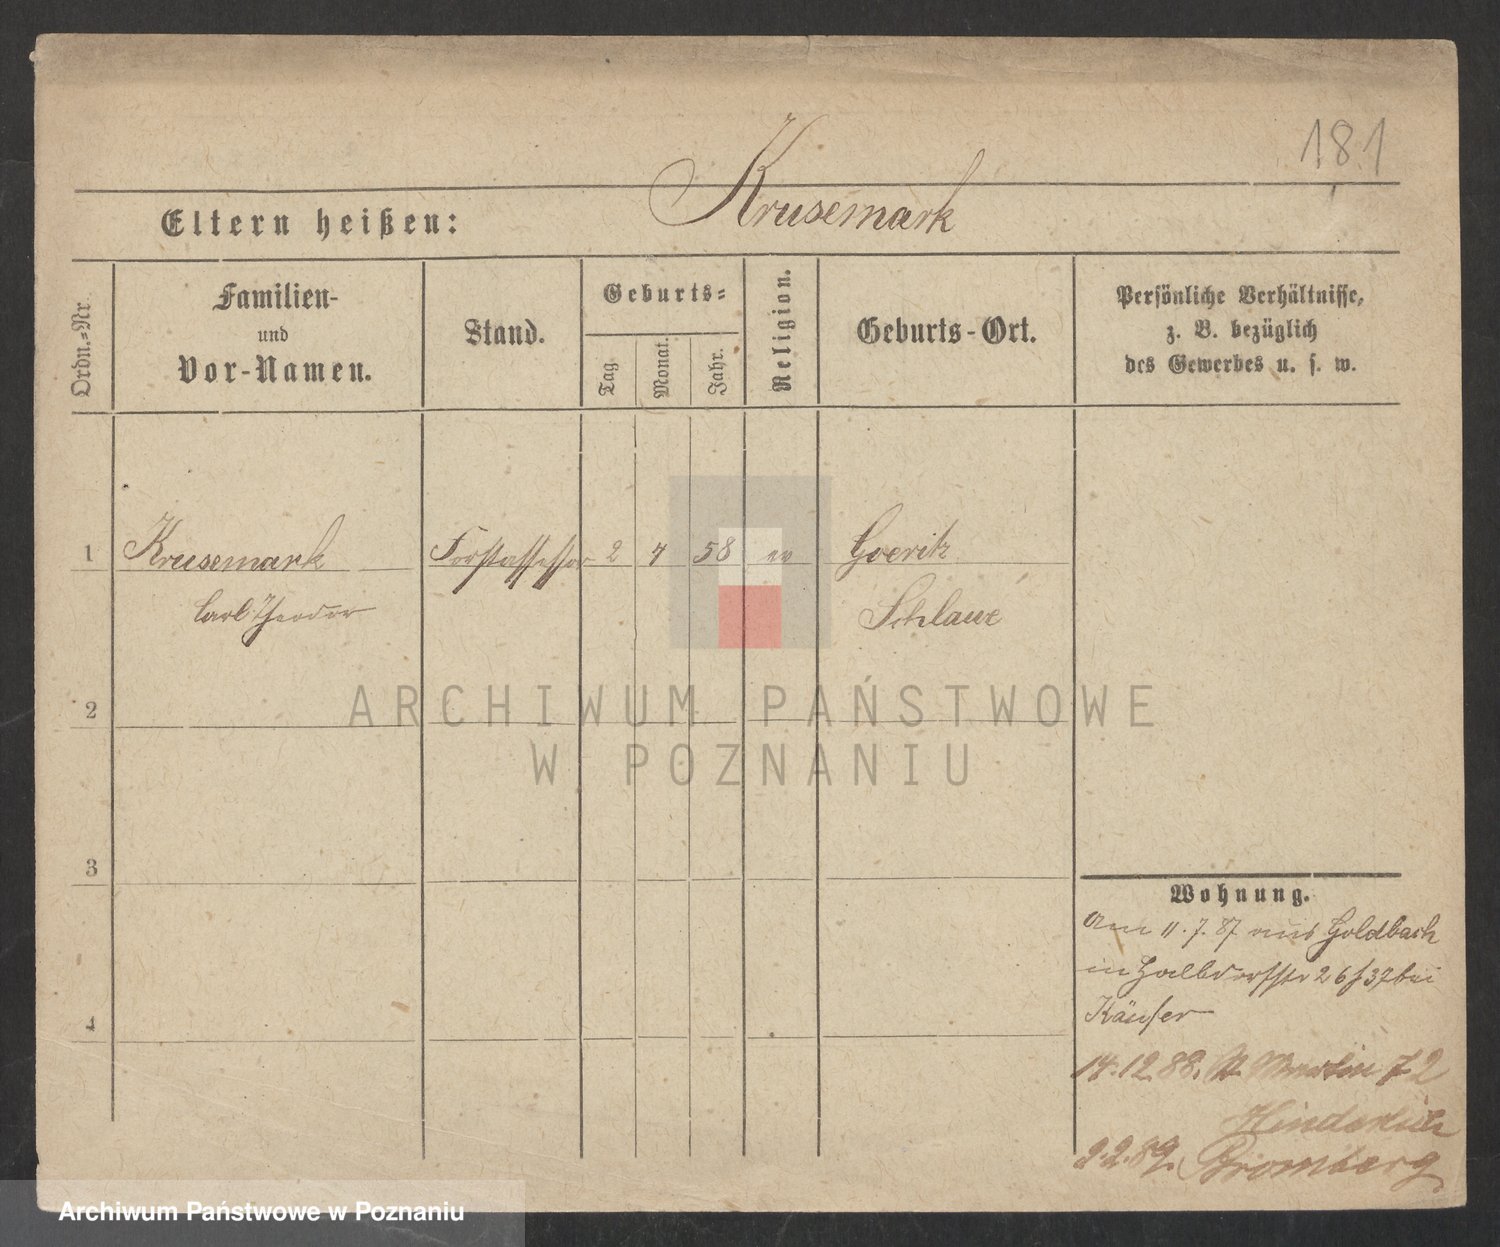 181
Eltern heißen: Krusemark
Ordn.-Nr.
Familien-
und
Vor-Namen.
Stand.
Geburts-
Tag
Monat.
Jahr.
Religion.
Geburts-Ort.
Persönliche Verhältnisse,
z. B. bezüglich
des Gewerbes u. s. w.
1 Krusemark Forstassessor 2 4 58 ev Goeritz
Carl Theodor Schlawe
2
3
4
Wohnung.
Am 11.7.87 aus Goldbach
in Halbdorfstr 26 37 bei
Käufer
14.12.88. St Martin 72
Hinderlich
2.2.89. Bromberg
ARCHIWUM PAŃSTWOWE
W POZNANIU
Archiwum Państwowe w Poznaniu